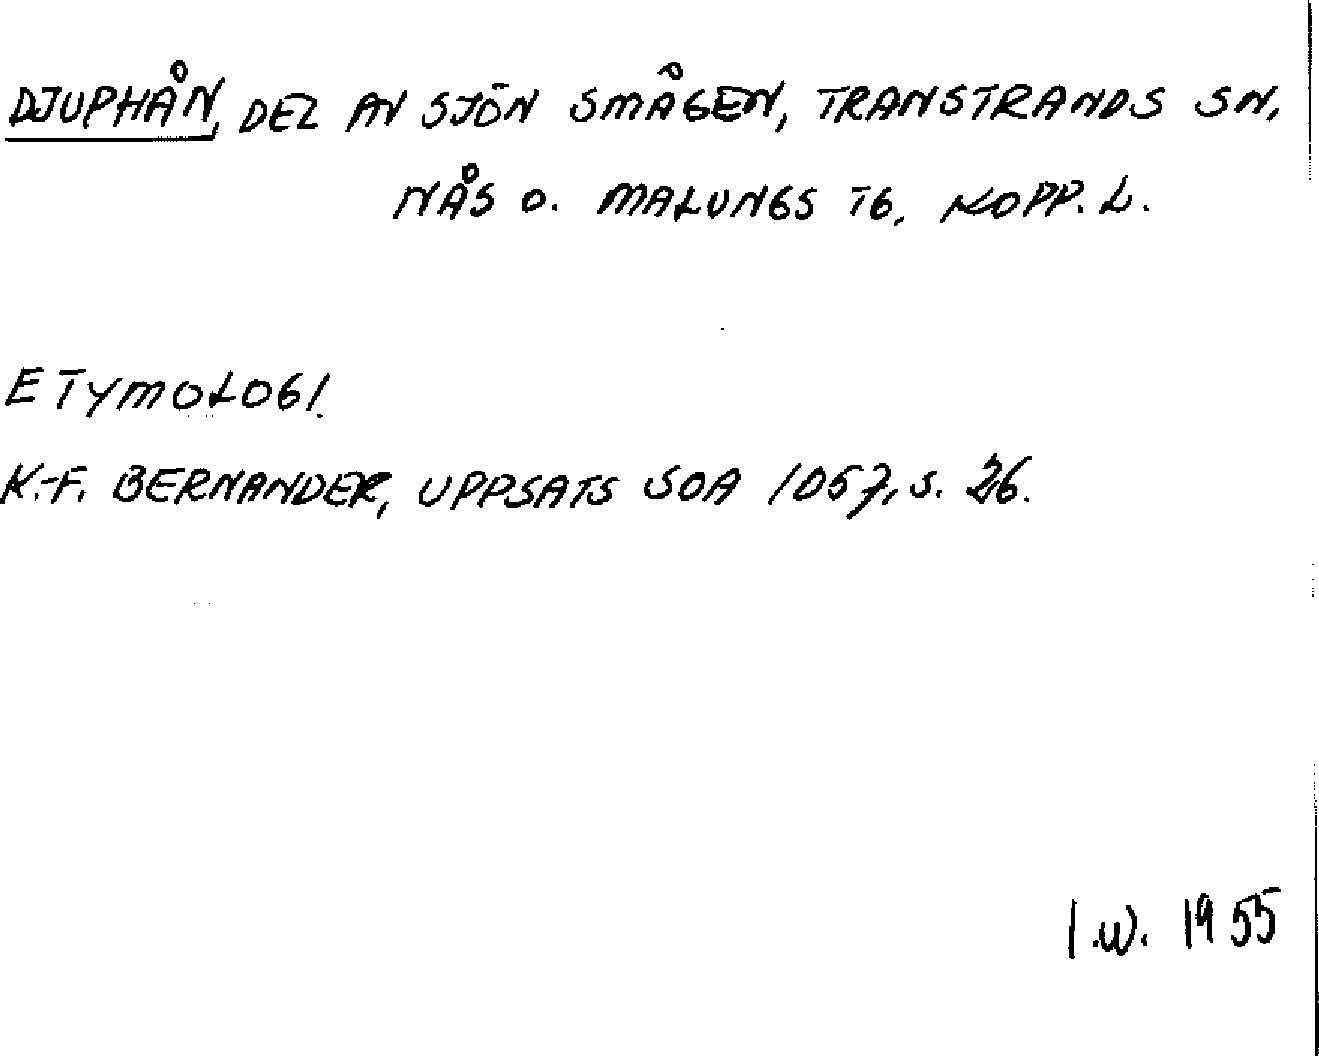 DJUPHÅN, DEL AV SJÖN SMÅGEN, TRANSTRANDS SN,
NÅS O. MALUNGS TG, KOPP. L.
ETYMOLOGI.
K.-F. BERNANDER, UPPSATS SOA 1057, S. 26.
I.W. 1955